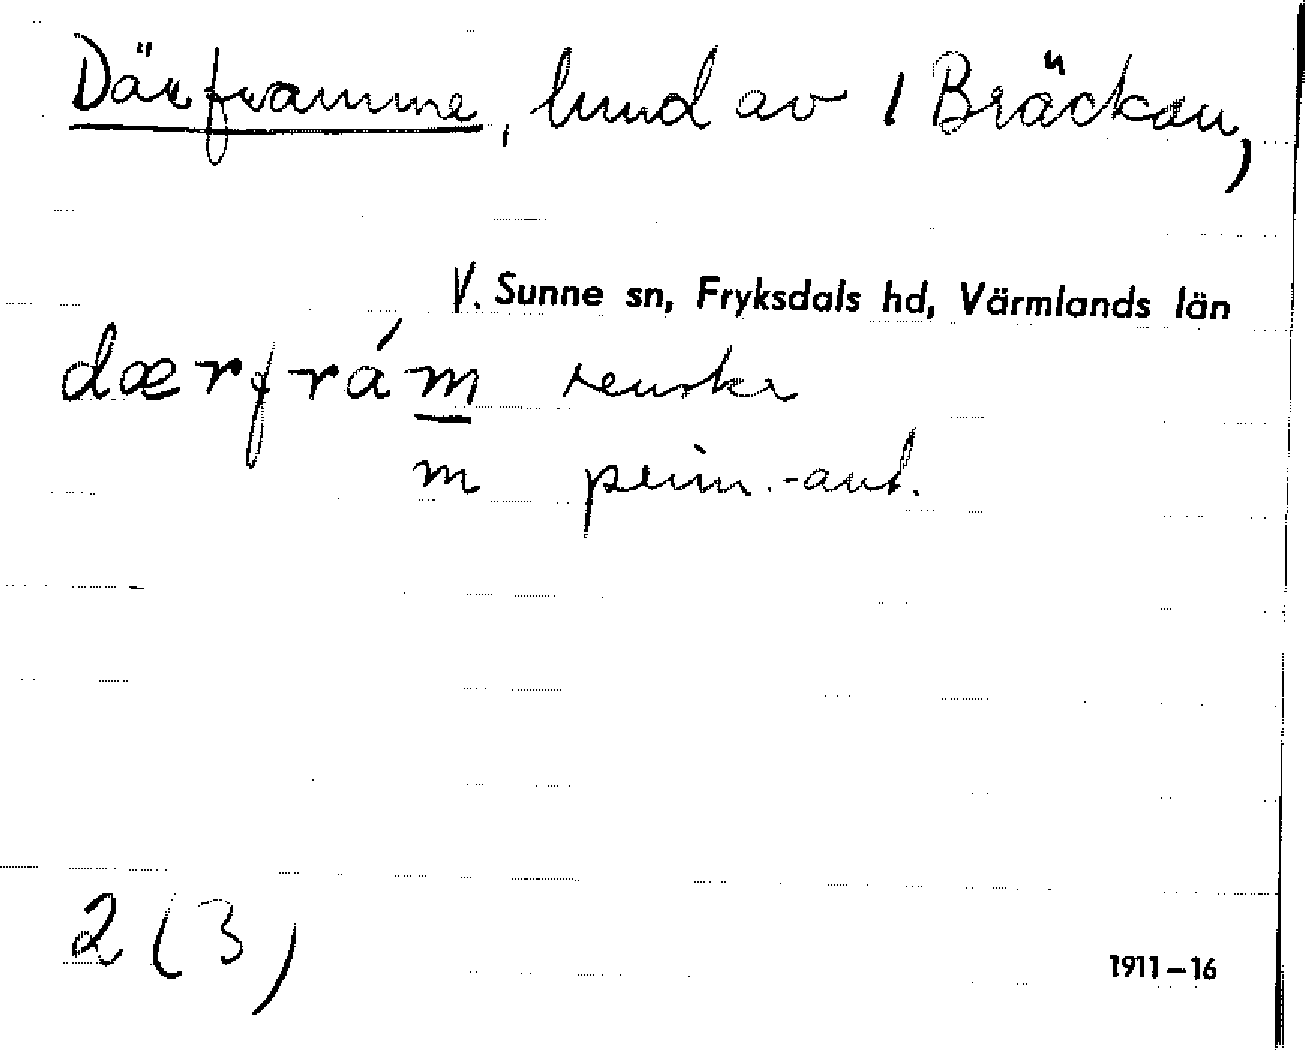 Därframme, lund av 1 Bräckan,
V. Sunne sn, Fryksdals hd, Värmlands län
dærfrám renskr
m prim.-ant.
2 (3)
1911-16